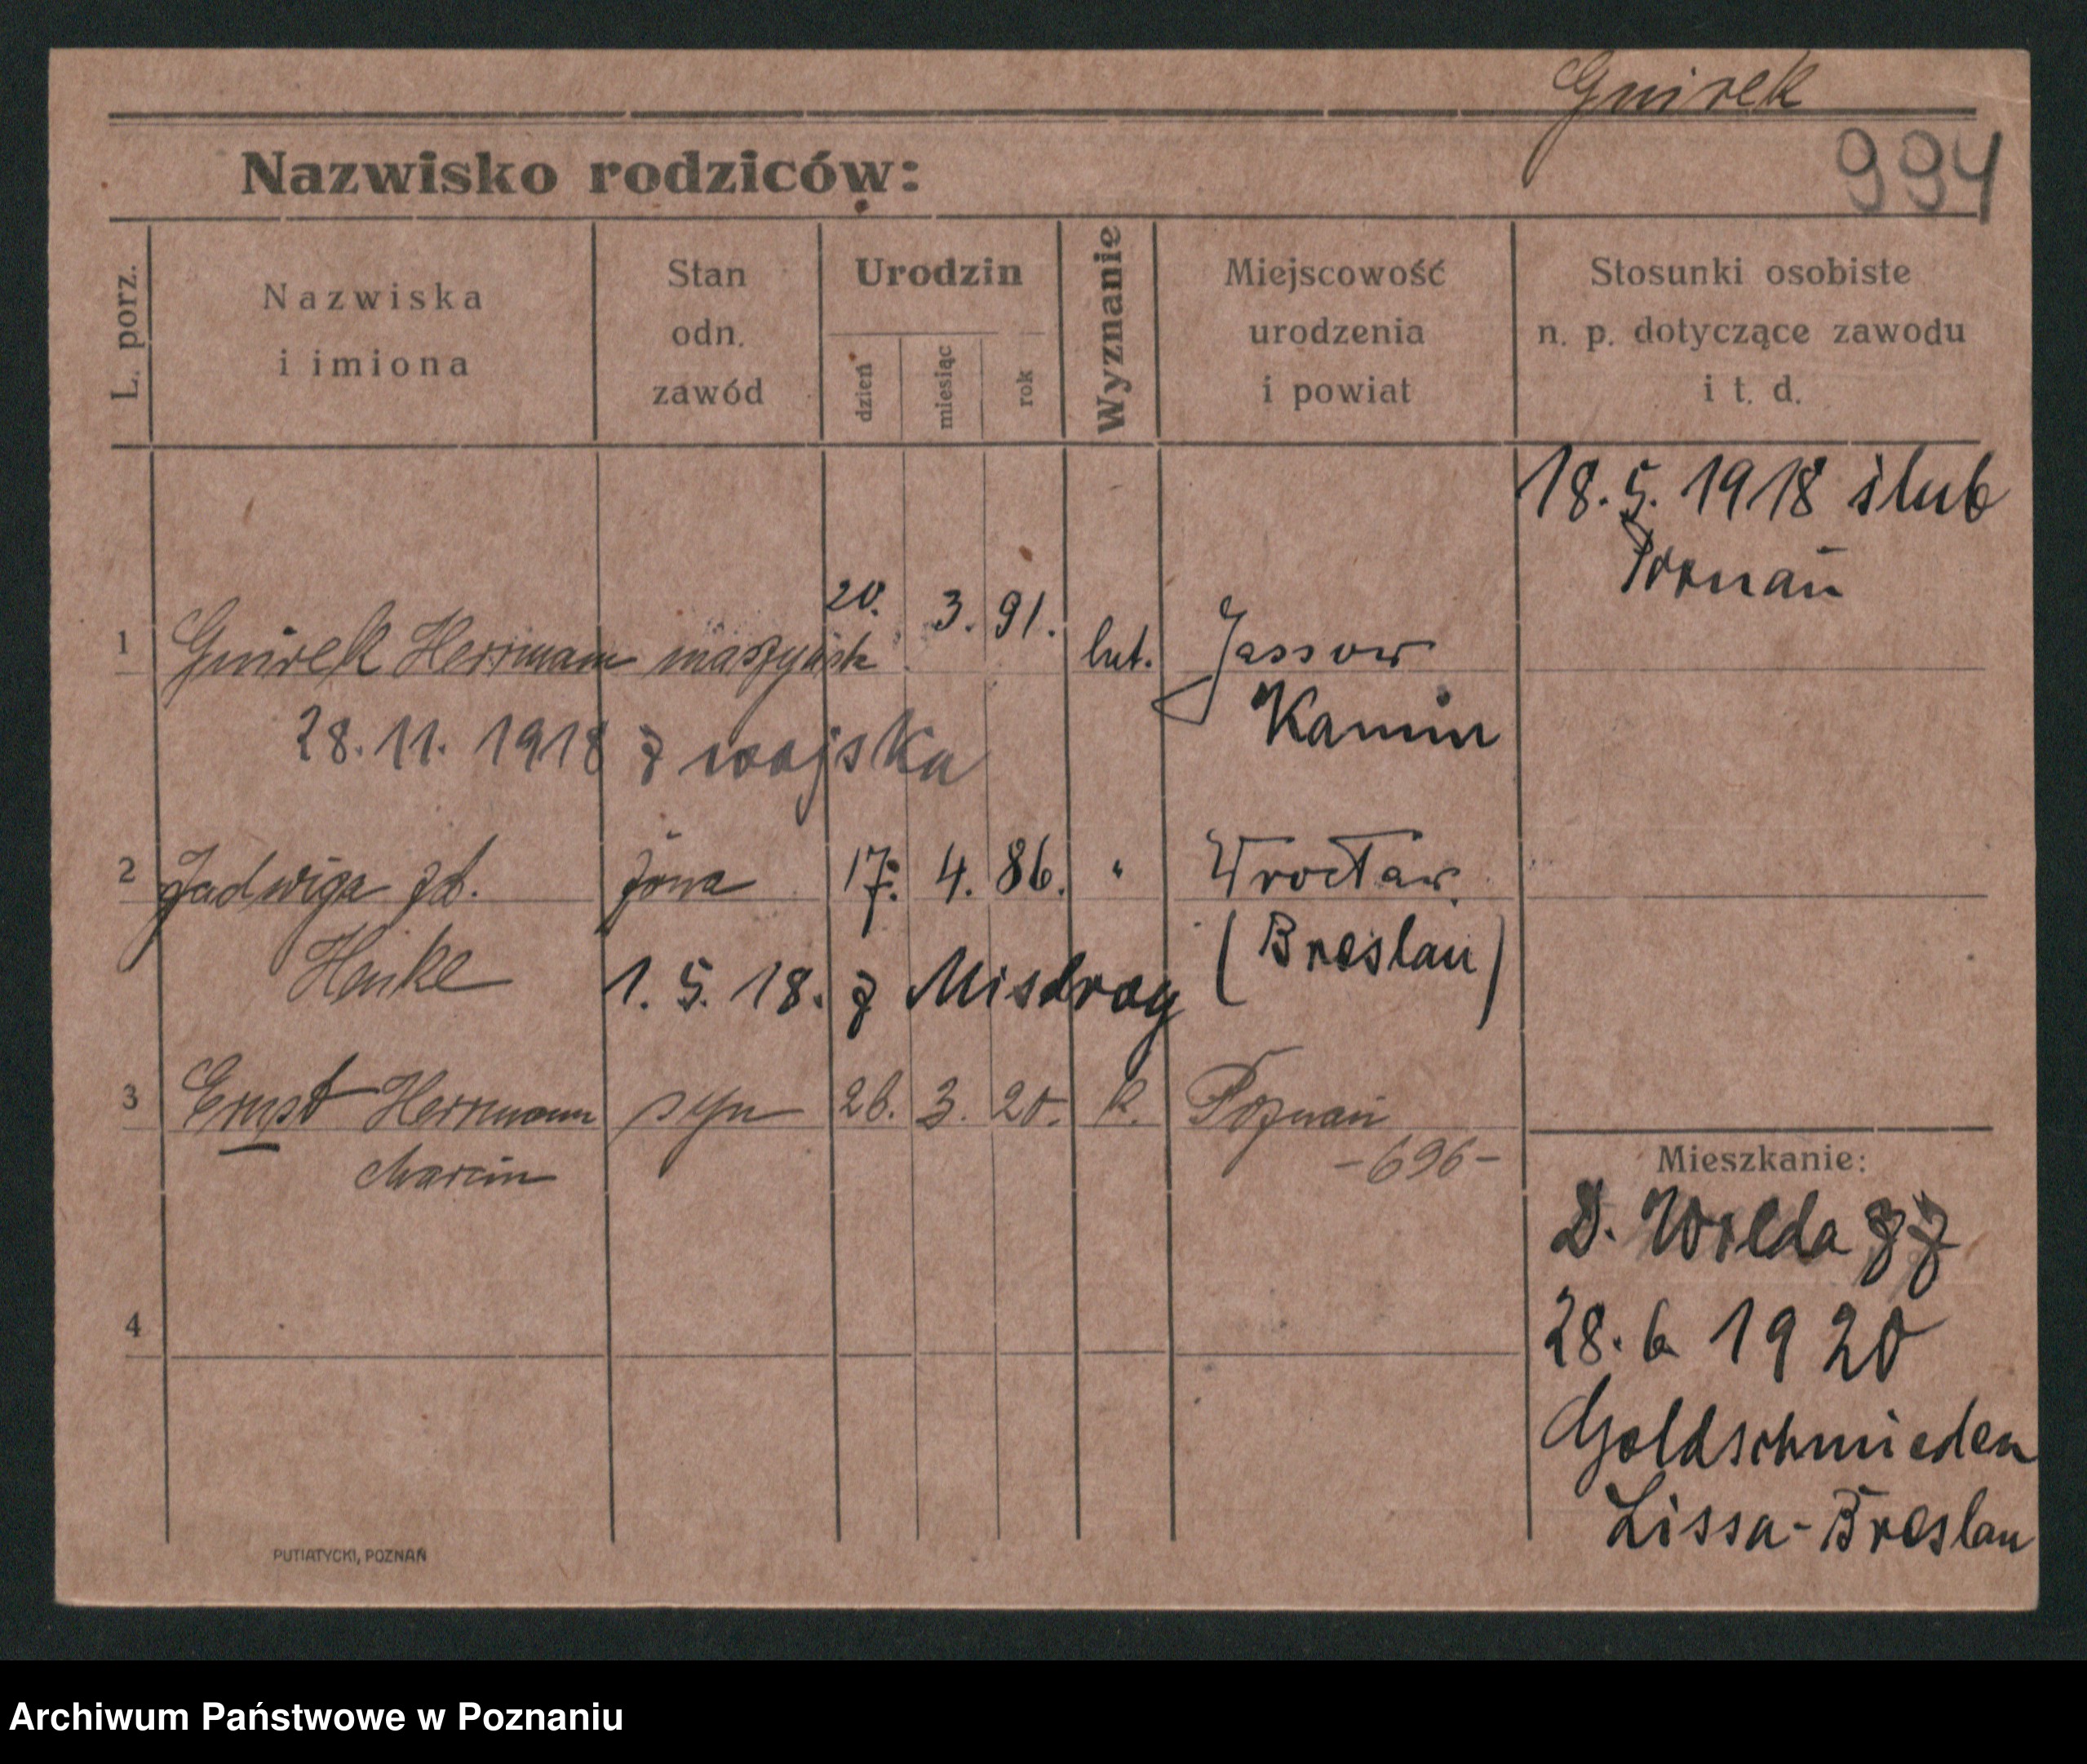 Gnirek
994
Nazwisko rodziców:
L. porz.
Nazwiska
i imiona
Stan
odn.
zawód
Urodzin
dzień
miesiąc
rok
Wyznanie
Miejscowość
urodzenia
i powiat
Stosunki osobiste
n. p. dotyczące zawodu
i t. d.
18. 5. 1918 ślub
Poznań
1 Gnirek Herrmann maszynista 20. 3. 91. lut. Jassow
Kamin
28. 11. 1918 z wojska
2 Jadwiga zd. żona 17. 4. 86. " Wrocław
Henke 1. 5. 18. z Misdroy (Breslau)
3 Ernst Herrmann syn 26. 3. 20. k. Poznań
Marcin -696-
Mieszkanie:
D. Wilda
28. 6. 1920
Goldschmieden
Lissa-Breslau
4
PUTIATYCKI, POZNAŃ
Archiwum Państwowe w Poznaniu